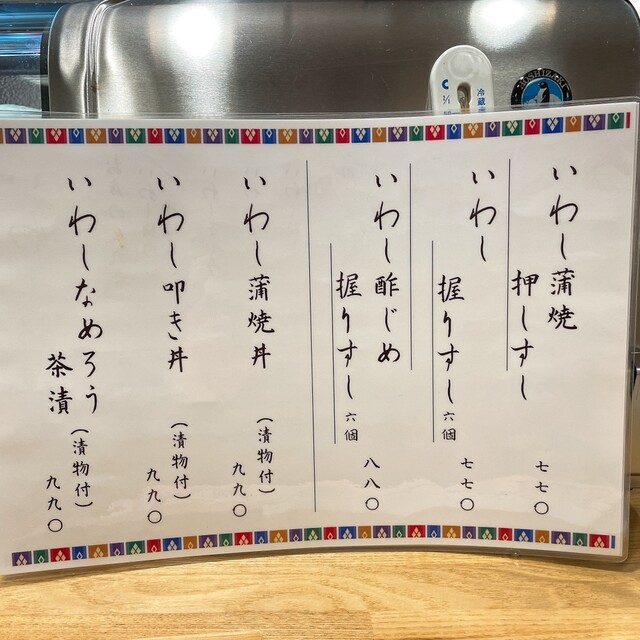 いわし蒲焼
押しすし
七七〇
いわし
握りすし六個
七七〇
いわし酢じめ
握りすし六個
八八〇
いわし蒲焼丼
(漬物付)
九九〇
いわし叩き丼
(漬物付)
九九〇
いわしなめろう
茶漬
(漬物付)
九九〇
HOSHIZAKI